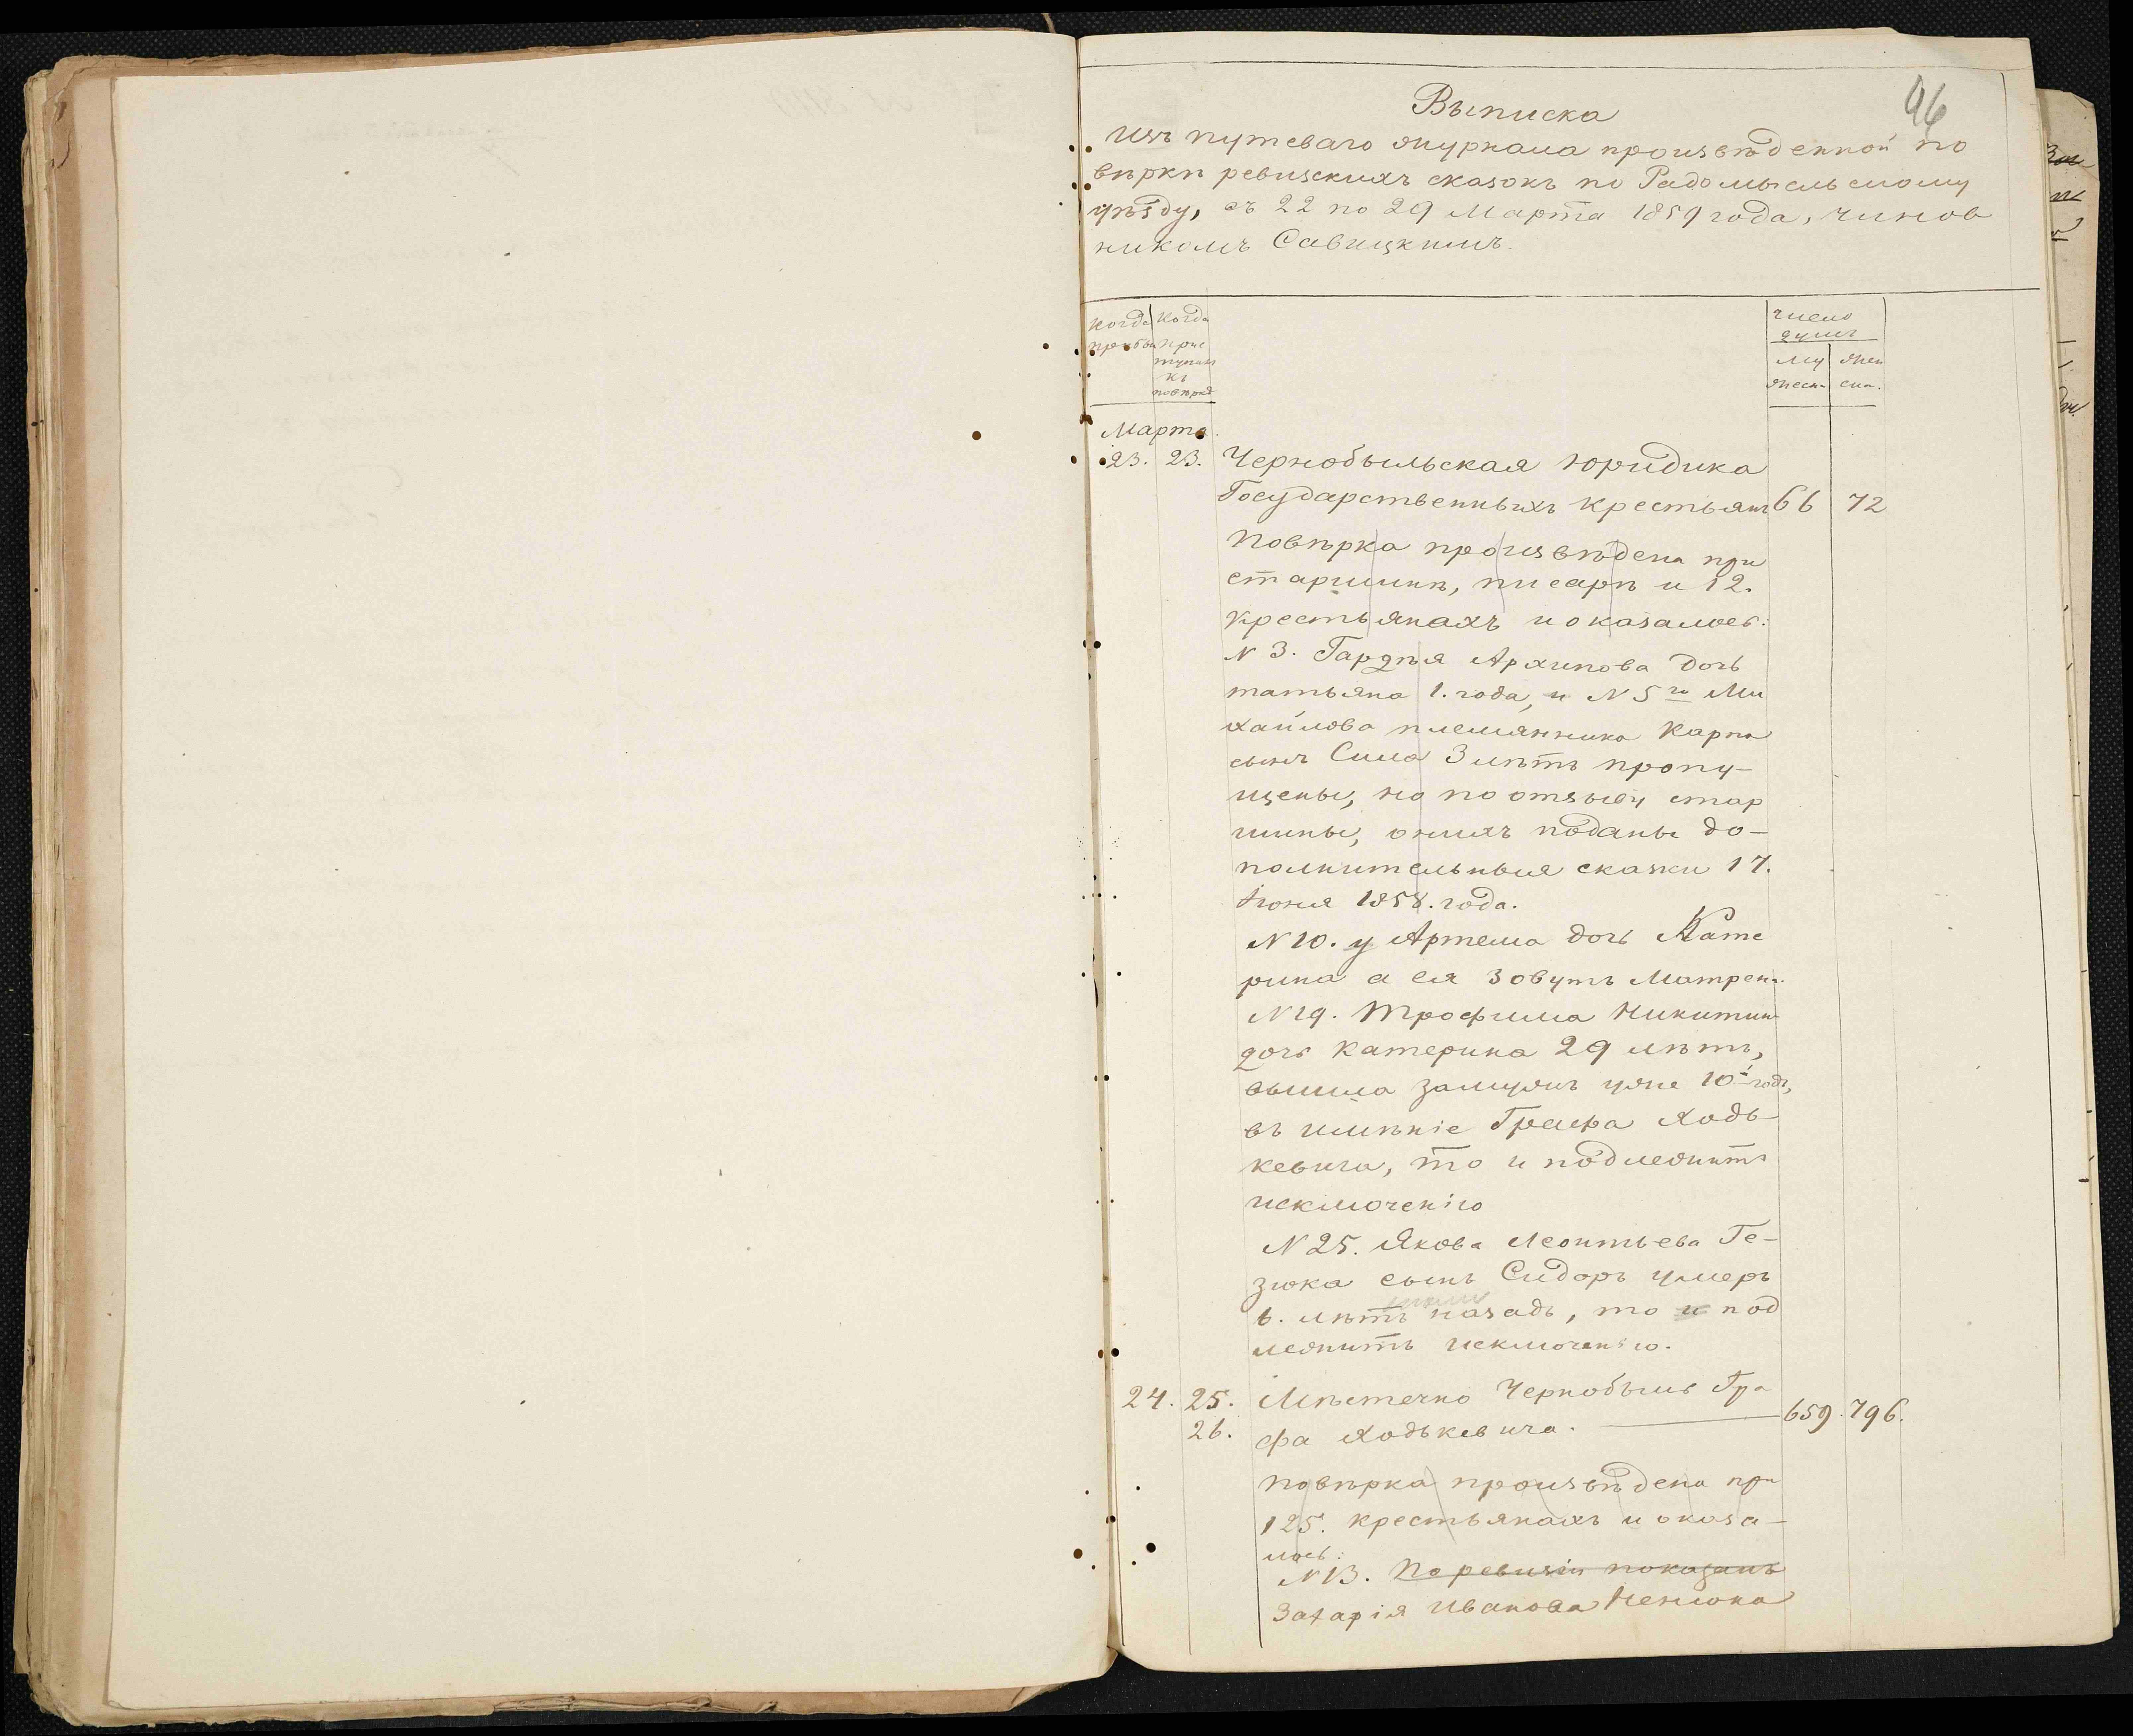 96
Выписка
изъ путеваго журнала произвѣденной по
вѣрки ревизскихъ сказокъ по Радомысльскому
уѣзду, съ 22 по 29 Марта 1859 года, чинов
никомъ Савицкимъ.
Когда прибы
Когда прис тупилъ къ повѣркѣ
число душъ
му жеск.
жен ска.
Марта.
23. 23. Чернобыльская юридика
Государственныхъ крестьянъ 66 72
Повѣрка произвѣдена при
старшинѣ, писарѣ и 12.
крестьянахъ и оказалось:
N 3. Гардѣя Архипова дочь
татьяна 1. года, и N 5го Ми
хайлова племянника Карпа
сынъ Сила 3 лѣтъ пропу-
щены, но по отзыву стар
шины, онихъ поданы до-
полнительныя сказки 17.
Іюня 1858. года.
N 10. у Артема дочь Кате
рина а ея зовутъ Матрена.
N 19. Трофима Никитин
дочь Катерина 29 лѣтъ,
вышла замужъ уже 10й годъ,
въ имѣніе Графа Ходь-
кевича, то и подлежитъ
исключенію
N 25. Якова Леонтьева Ге-
зюка сынъ Сидоръ умеръ
6. лѣтъ назадъ, то и под
лежитъ исключенію.
24. 25. Мѣстечко Чернобыль Гра
26. фа Ходькевича. 659. 796.
Повѣрка произвѣдена при
125. крестьянахъ и оказа-
лось:
N 13. По ревизіи показанъ
Захарія Иванова